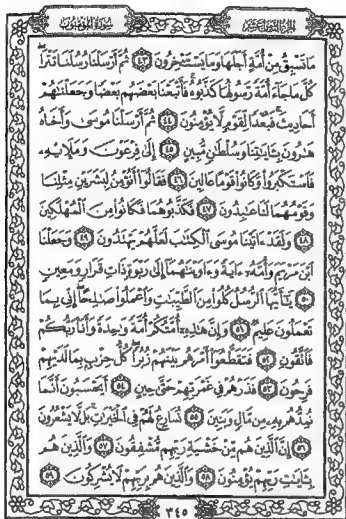 سورة المؤمنون
الجزء الثامن عشر
مَا تَسْبِقُ مِنْ أُمَّةٍ أَجَلَهَا وَمَا يَسْتَـْٔخِرُونَ ٤٣ ثُمَّ أَرْسَلْنَا رُسُلَنَا تَتْرَا
كُلَّ مَا جَآءَ أُمَّةً رَّسُولُهَا كَذَّبُوهُ فَأَتْبَعْنَا بَعْضَهُم بَعْضًا وَجَعَلْنَٰهُمْ
أَحَادِيثَ فَبُعْدًا لِّقَوْمٍ لَّا يُؤْمِنُونَ ٤٤ ثُمَّ أَرْسَلْنَا مُوسَىٰ وَأَخَاهُ
هَٰرُونَ بِـَٔايَٰتِنَا وَسُلْطَٰنٍ مُّبِينٍ ٤٥ إِلَىٰ فِرْعَوْنَ وَمَلَإِيْهِۦ
فَٱسْتَكْبَرُوا۟ وَكَانُوا۟ قَوْمًا عَالِينَ ٤٦ فَقَالُوٓا۟ أَنُؤْمِنُ لِبَشَرَيْنِ مِثْلِنَا
وَقَوْمُهُمَا لَنَا عَٰبِدُونَ ٤٧ فَكَذَّبُوهُمَا فَكَانُوا۟ مِنَ ٱلْمُهْلَكِينَ
٤٨ وَلَقَدْ ءَاتَيْنَا مُوسَى ٱلْكِتَٰبَ لَعَلَّهُمْ يَهْتَدُونَ ٤٩ وَجَعَلْنَا
ٱبْنَ مَرْيَمَ وَأُمَّهُۥٓ ءَايَةً وَءَاوَيْنَٰهُمَآ إِلَىٰ رَبْوَةٍ ذَاتِ قَرَارٍ وَمَعِينٍ
٥٠ يَٰٓأَيُّهَا ٱلرُّسُلُ كُلُوا۟ مِنَ ٱلطَّيِّبَٰتِ وَٱعْمَلُوا۟ صَٰلِحًا إِنِّى بِمَا
تَعْمَلُونَ عَلِيمٌ ٥١ وَإِنَّ هَٰذِهِۦٓ أُمَّتُكُمْ أُمَّةً وَٰحِدَةً وَأَنَا۠ رَبُّكُمْ
فَٱتَّقُونِ ٥٢ فَتَقَطَّعُوٓا۟ أَمْرَهُم بَيْنَهُمْ زُبُرًا كُلُّ حِزْبٍۭ بِمَا لَدَيْهِمْ
فَرِحُونَ ٥٣ فَذَرْهُمْ فِى غَمْرَتِهِمْ حَتَّىٰ حِينٍ ٥٤ أَيَحْسَبُونَ أَنَّمَا
نُمِدُّهُم بِهِۦ مِن مَّالٍ وَبَنِينَ ٥٥ نُسَارِعُ لَهُمْ فِى ٱلْخَيْرَٰتِ بَل لَّا يَشْعُرُونَ
٥٦ إِنَّ ٱلَّذِينَ هُم مِّنْ خَشْيَةِ رَبِّهِم مُّشْفِقُونَ ٥٧ وَٱلَّذِينَ هُم
بِـَٔايَٰتِ رَبِّهِمْ يُؤْمِنُونَ ٥٨ وَٱلَّذِينَ هُم بِرَبِّهِمْ لَا يُشْرِكُونَ ٥٩
٣٤٥